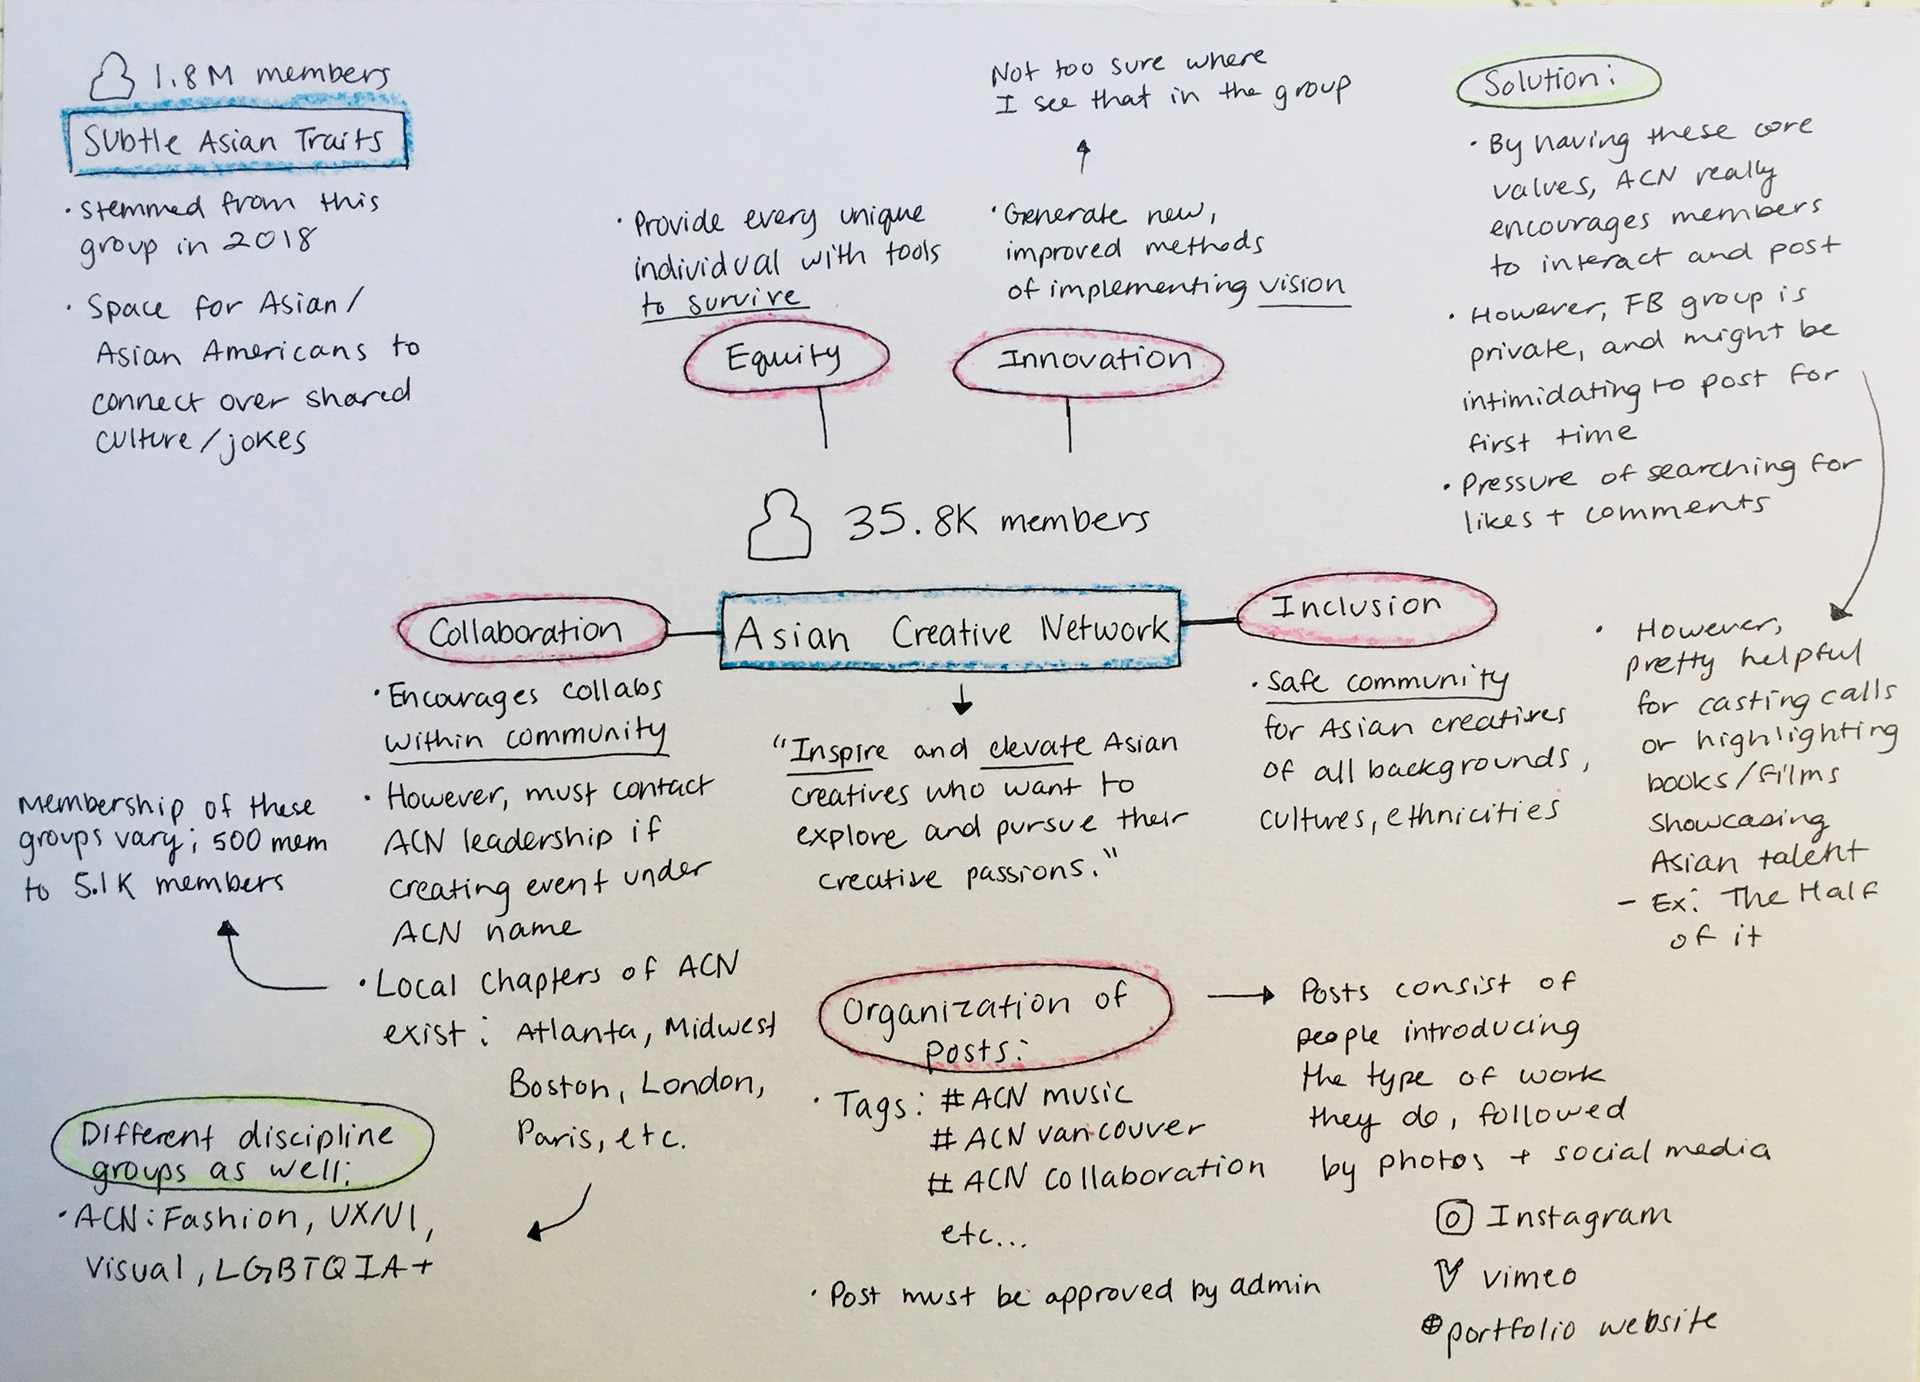 1.8M members
Subtle Asian Traits
· Stemmed from this
group in 2018
· Space for Asian/
Asian Americans to
connect over shared
culture/jokes
· Provide every unique
individual with tools
to survive
Equity
Not too sure where
I see that in the group
· Generate new,
improved methods
of implementing vision
Innovation
Solution:
· By having these core
values, ACN really
encourages members
to interact and post
· However, FB group is
private, and might be
intimidating to post for
first time
· Pressure of searching for
likes + comments
· However,
pretty helpful
for casting calls
or highlighting
books/films
showcasing
Asian talent
- Ex: The Half
of it
35.8K members
Asian Creative Network
"Inspire and elevate Asian
creatives who want to
explore and pursue their
creative passions."
Collaboration
· Encourages collabs
within community
· However, must contact
ACN leadership if
creating event under
ACN name
· Local Chapters of ACN
exist: Atlanta, Midwest
Boston, London,
Paris, etc.
Membership of these
groups vary; 500 mem
to 5.1K members
Different discipline
groups as well:
· ACN: Fashion, UX/UI,
Visual, LGBTQIA+
Inclusion
· Safe community
for Asian creatives
of all backgrounds,
cultures, ethnicities
Organization of
posts:
· Tags: #ACN music
#ACN vancouver
#ACN collaboration
etc...
· Post must be approved by admin
Posts consist of
people introducing
the type of work
they do, followed
by photos + social media
Instagram
vimeo
portfolio website